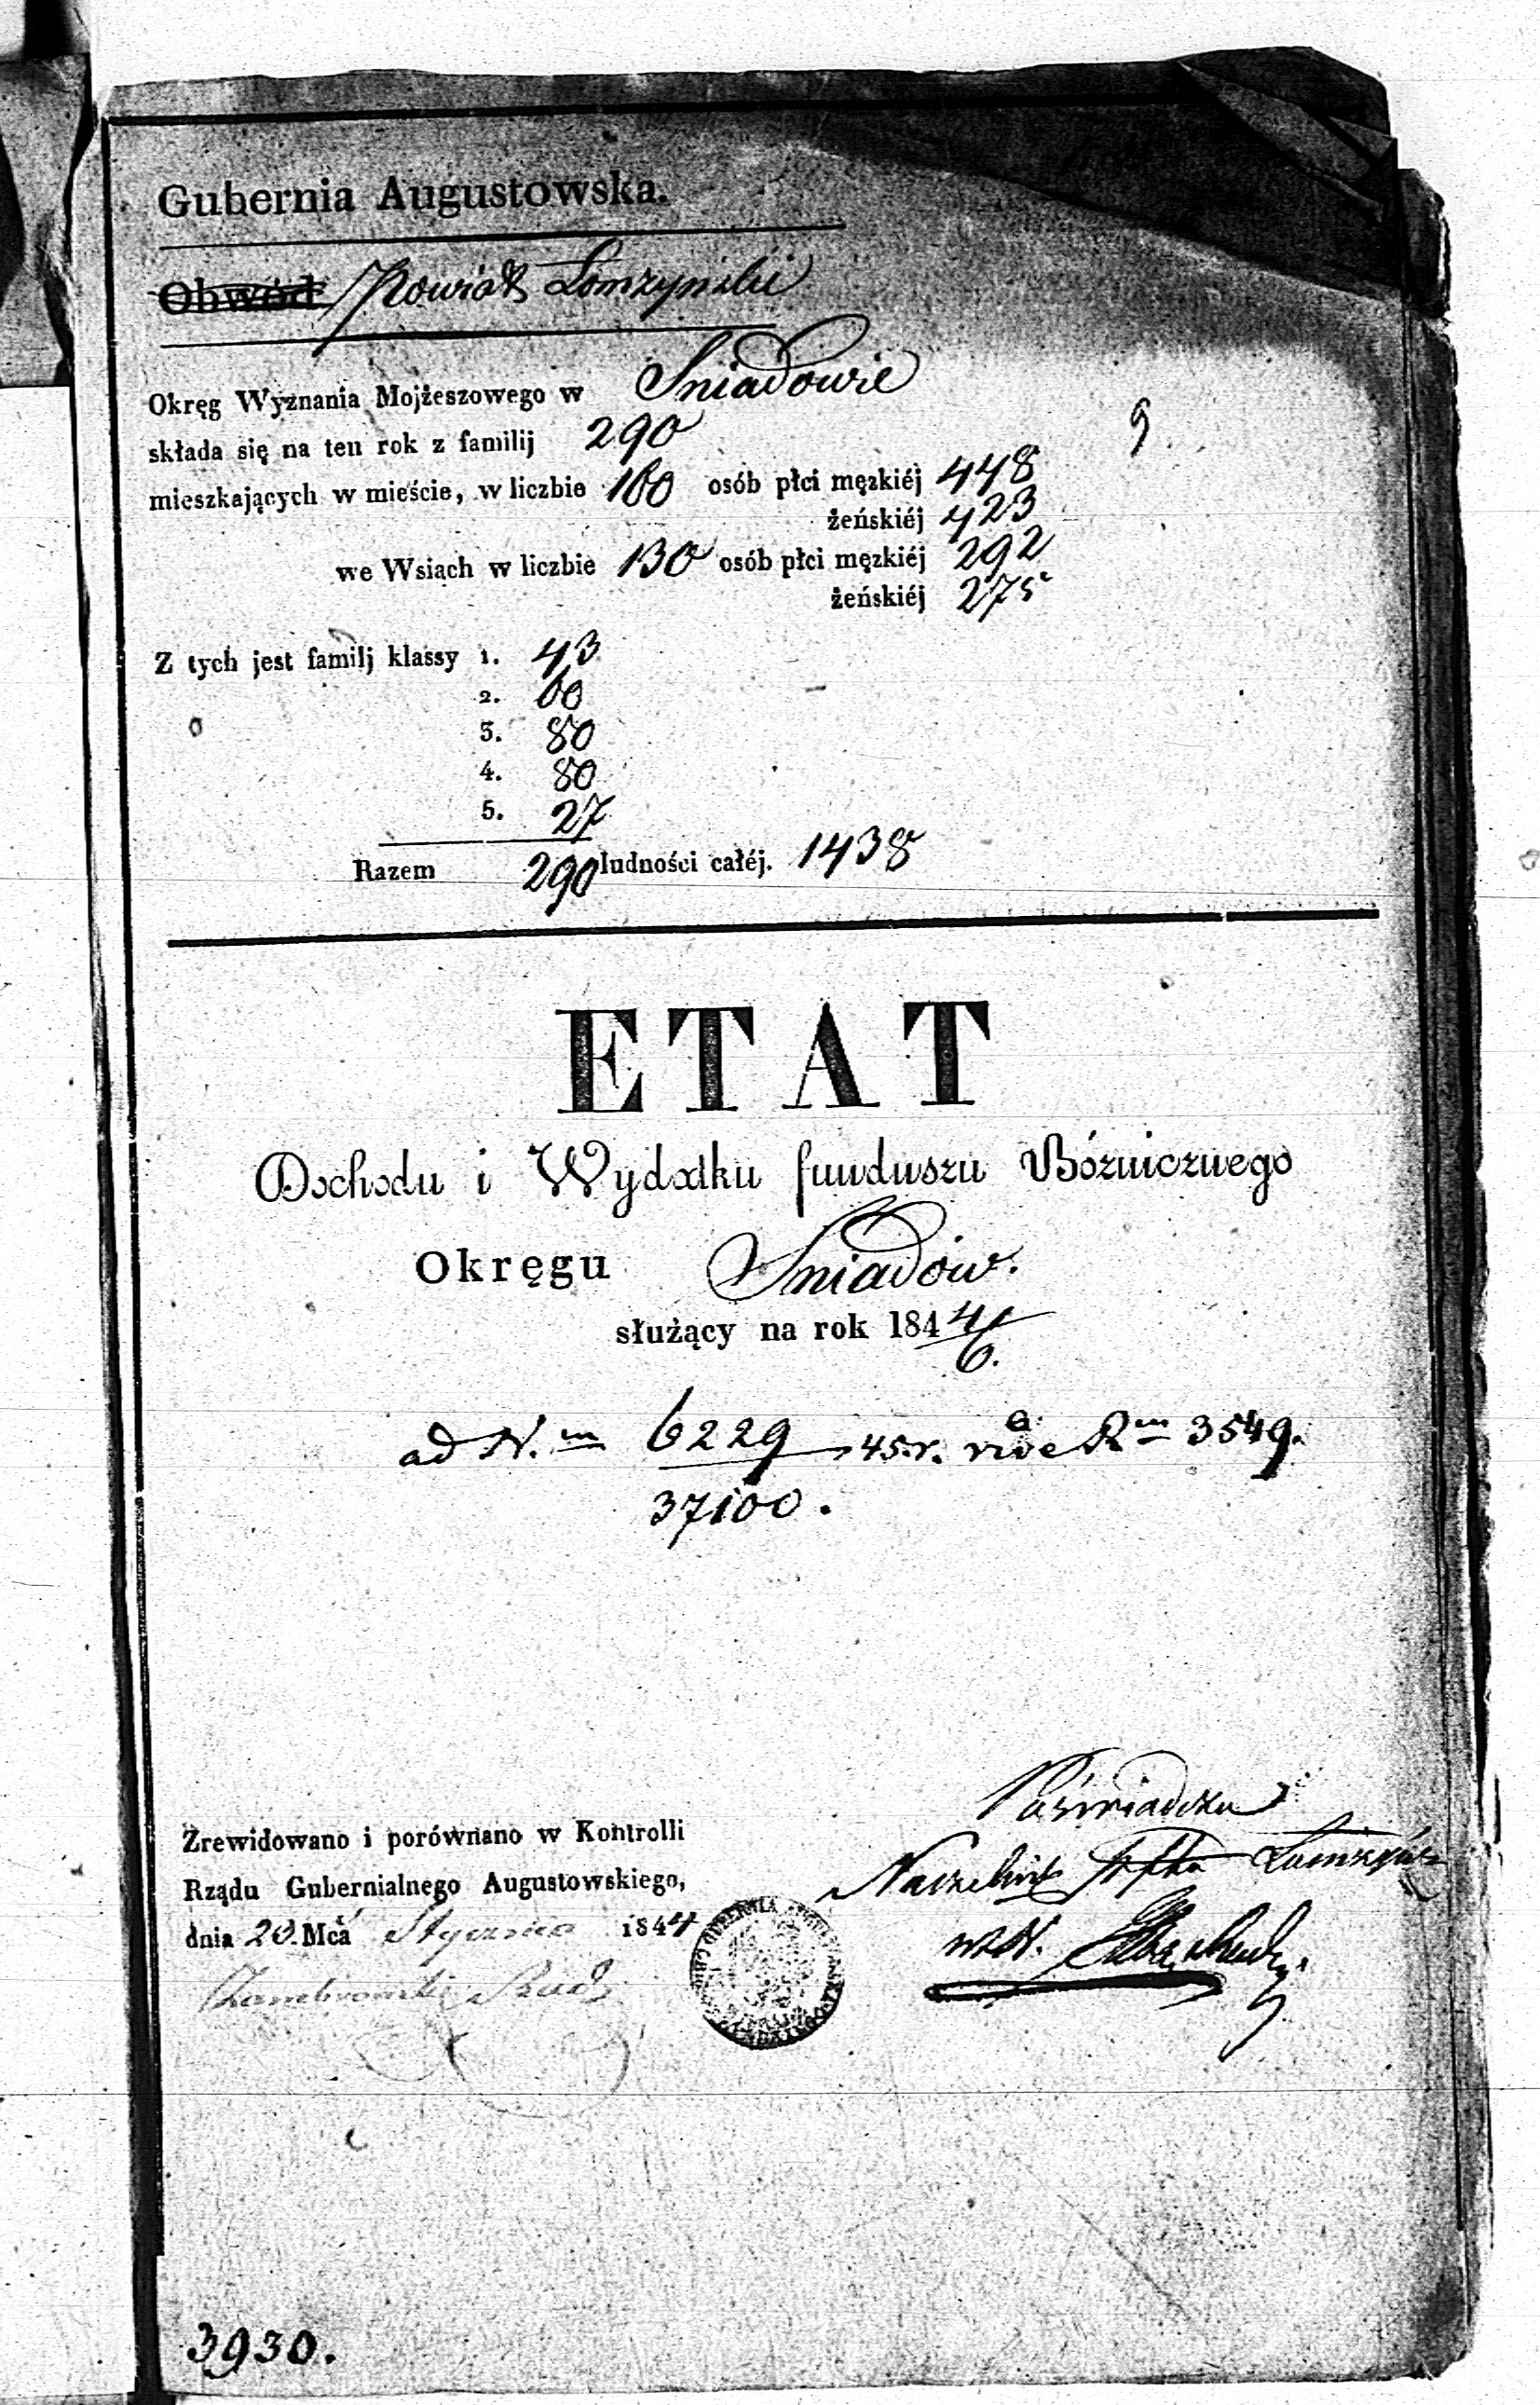 Gubernia Augustowska.
Obwód Powiat Łomżyński
Okręg Wyznania Mojżeszowego w Sniadowie
składa się na ten rok z familij 290
9
mieszkających w mieście, w liczbie 160 osób płci męzkiéj 448
żeńskiéj 423
we Wsiach w liczbie 130 osób płci męzkiéj 292
żeńskiéj 275
Z tych jest familij klassy 1. 43
2. 60
3. 80
4. 80
5. 27
Razem 290 ludności całéj. 1438
ETAT
Dochodu i Wydatku funduszu Bóżnicznego
Okręgu Sniadow.
służący na rok 184 4/6.
ad N.m 6229 45.r. vide Rm 3549.
37100.
Poświadcza
Zrewidowano i porównano w Kontrolli
Naczelnik Łomżyńs
Rządu Gubernialnego Augustowskiego,
dnia 20. Mca Stycznia 1844
w. N.
3930.